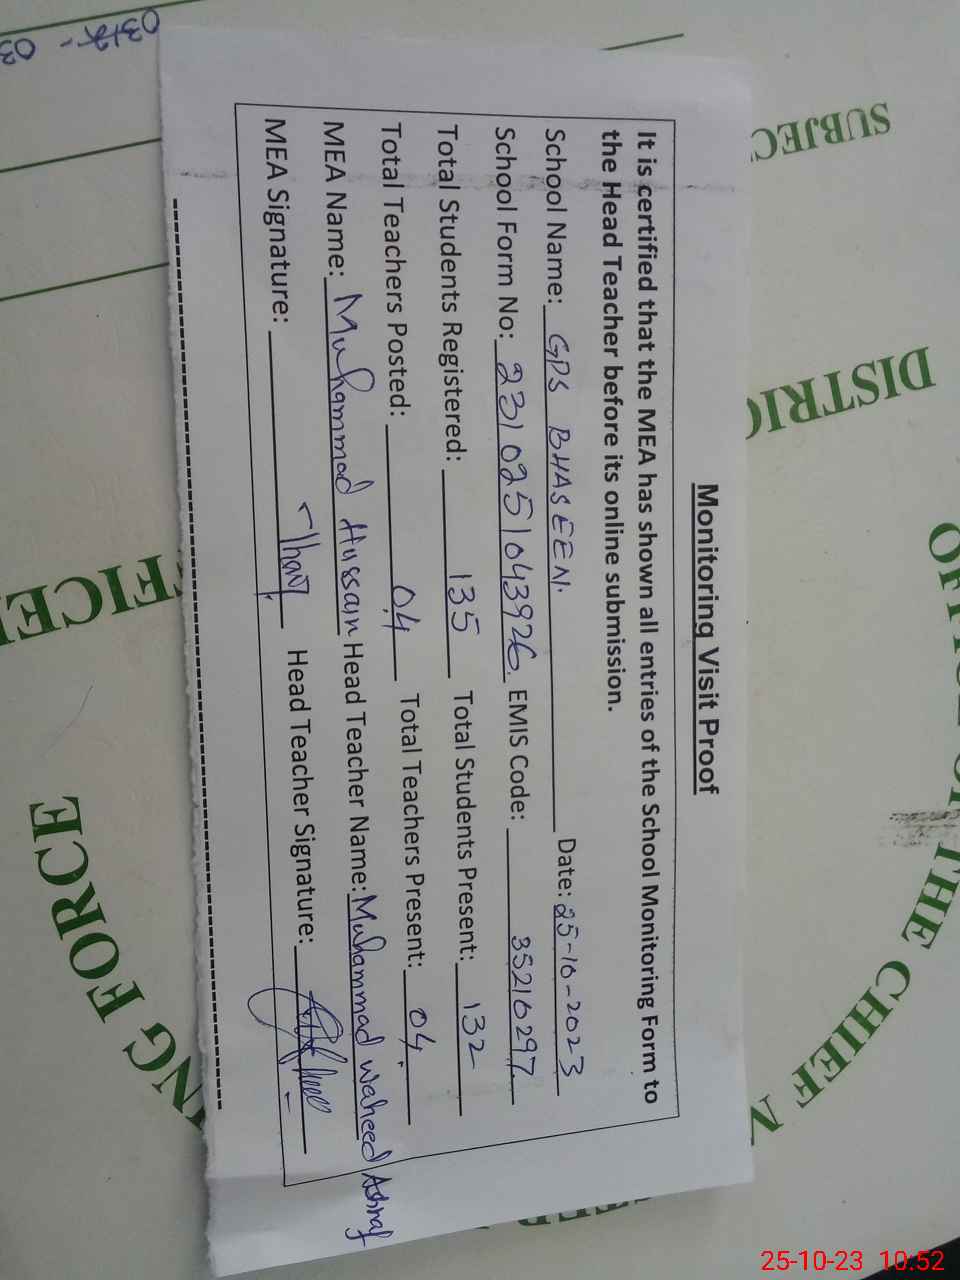 Monitoring Visit Proof
It is certified that the MEA has shown all entries of the School Monitoring Form to
the Head Teacher before its online submission.
School Name: GPS BHASEEN. Date: 25-10-2023
School Form No: 2310251043926 EMIS Code: 35210297
Total Students Registered: 135 Total Students Present: 132
Total Teachers Posted: 04 Total Teachers Present: 04
MEA Name: Muhammad Hussain Head Teacher Name: Muhammad waheed Ashraf
MEA Signature: Head Teacher Signature:
SUBJEC
DISTRIC
THE CHIEF M
FFICE
NG FORCE
25-10-23 10:52